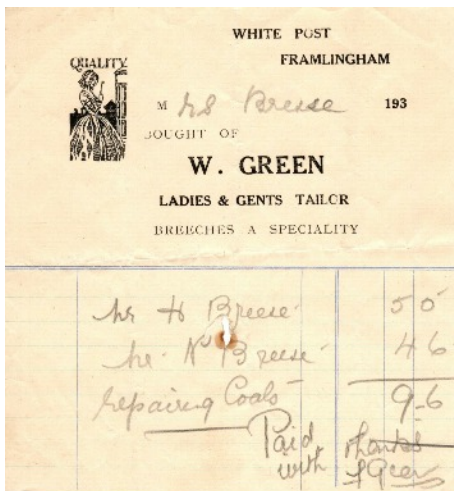 WHITE POST
FRAMLINGHAM
QUALITY
Mrs Breese 193
BOUGHT OF
W. GREEN
LADIES & GENTS TAILOR
BREECHES A SPECIALITY
Mr H Breese 5 0
Mr N Breese 4 6
repairing Coats 9-6
Paid thanks
with